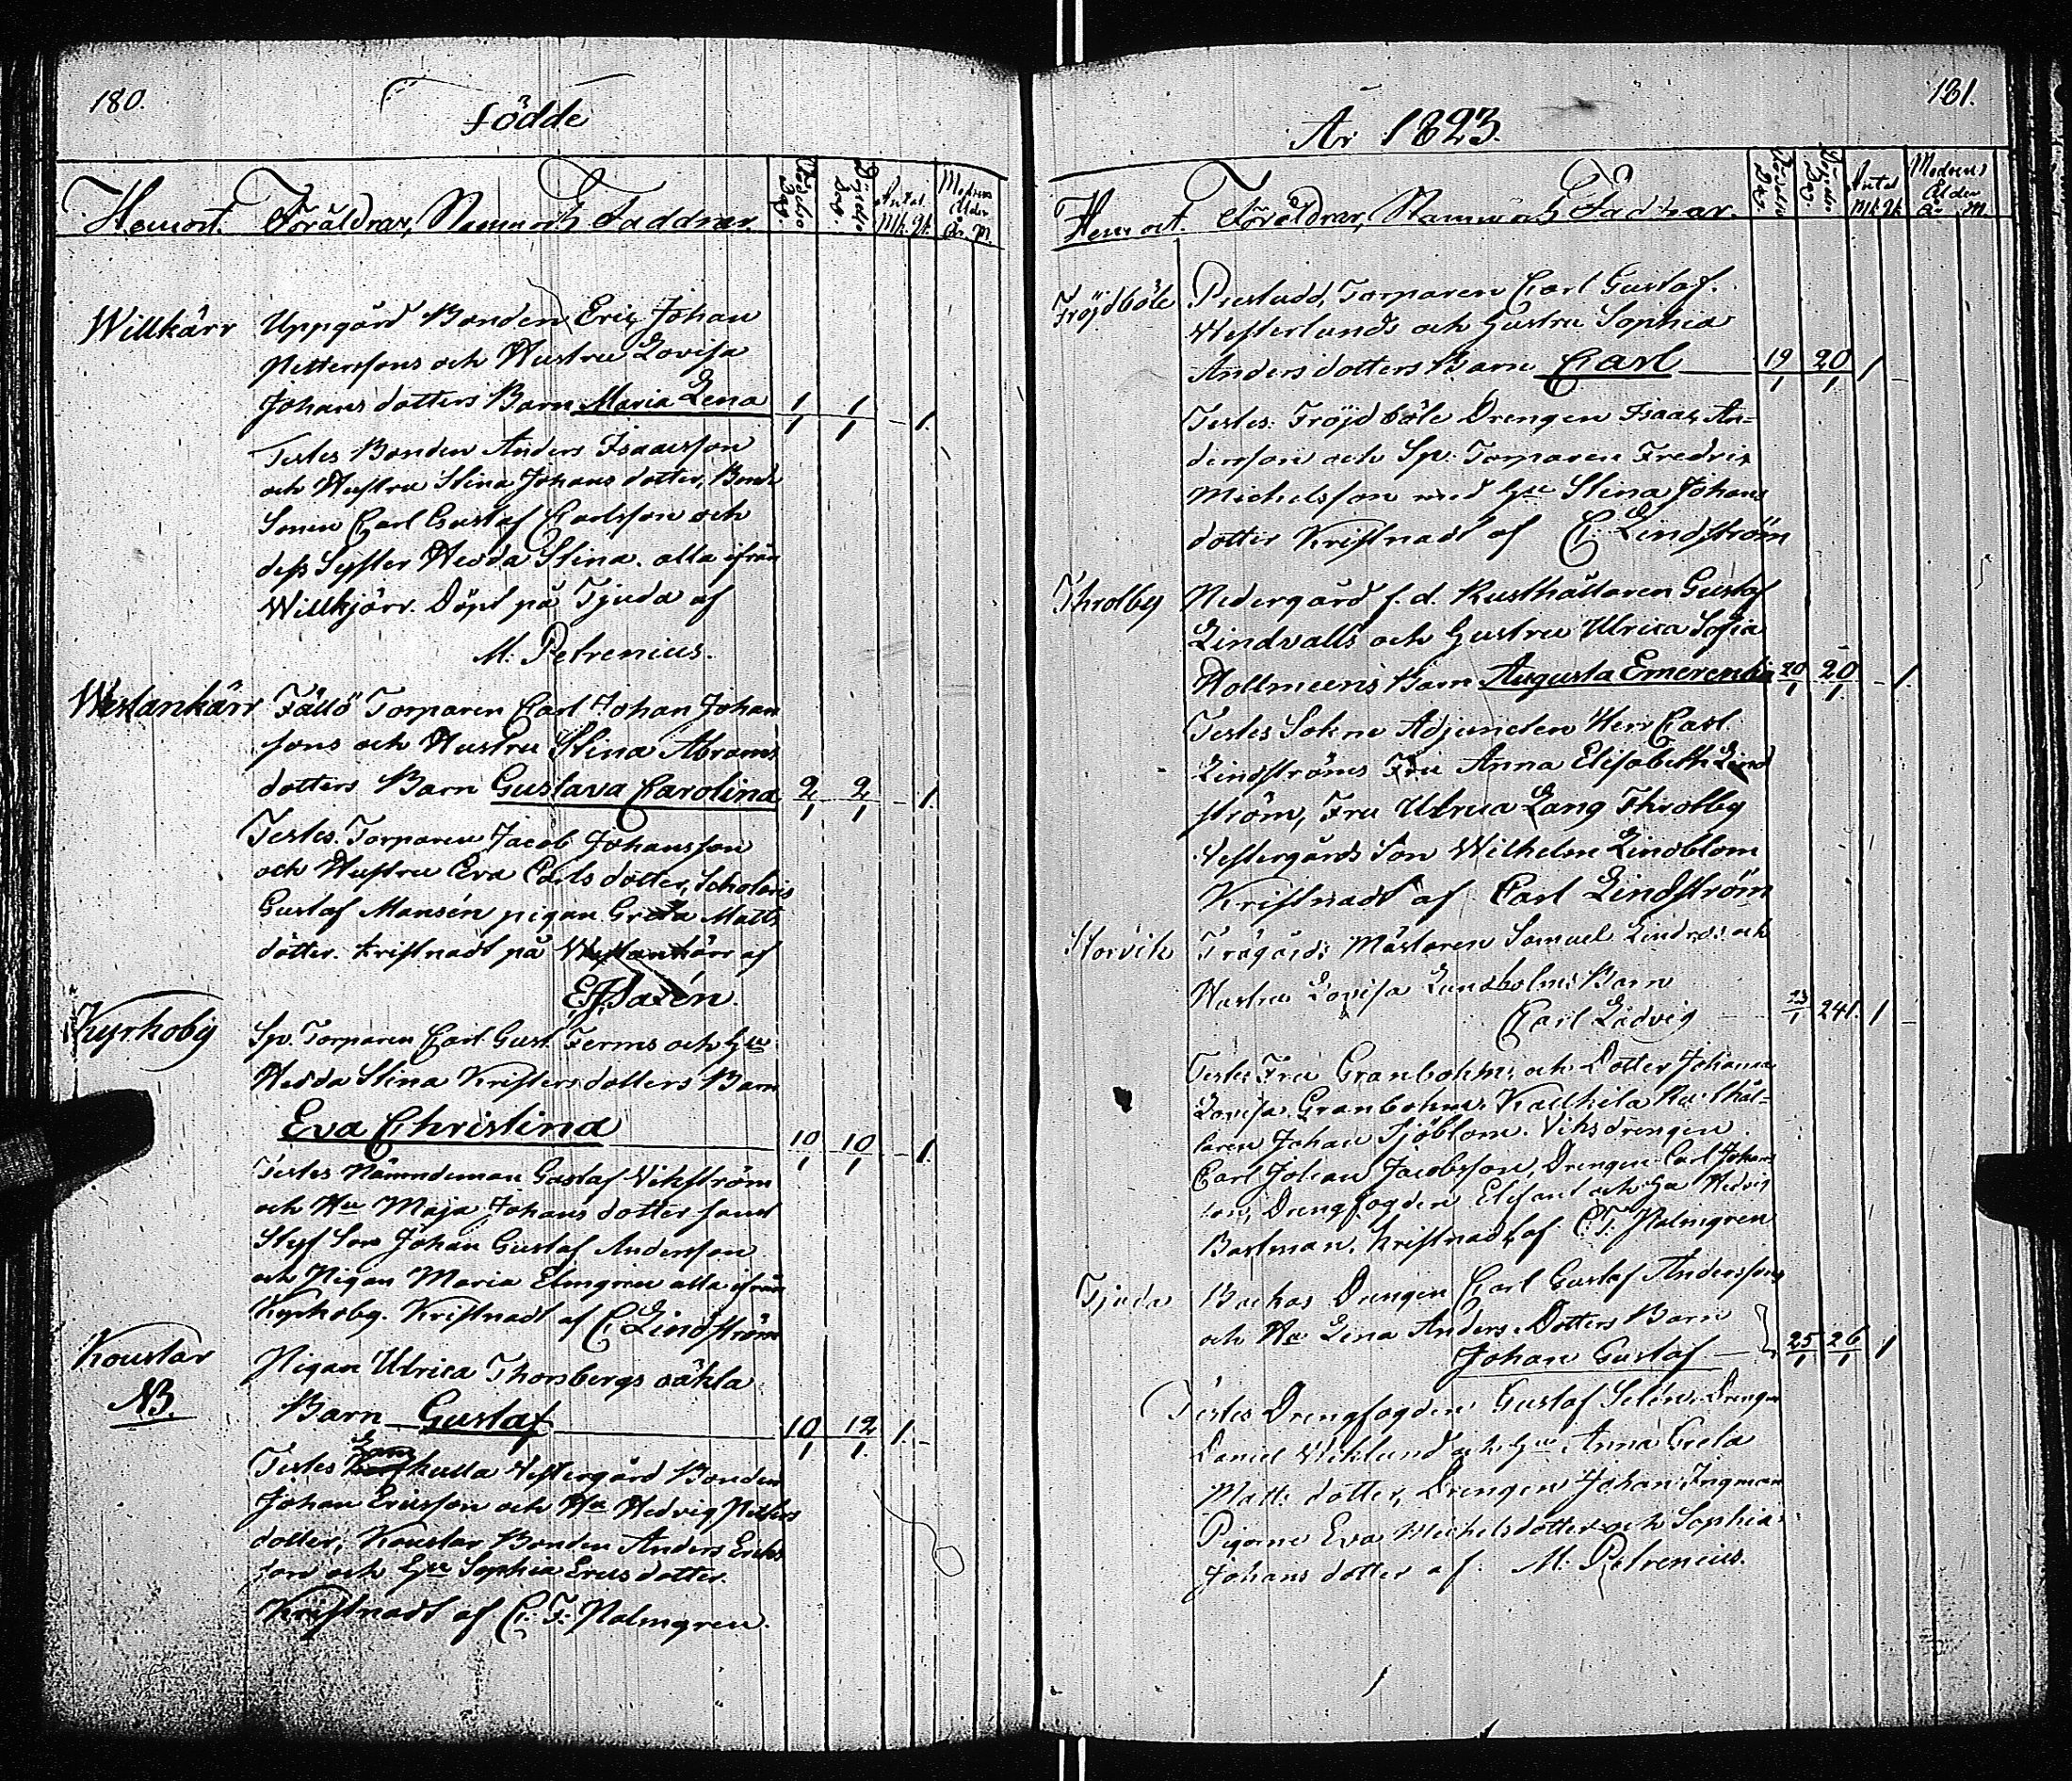 180.
Födde
Hemort. Föräldrar, Namn och Faddrar.
Födelse Dag.
Döpelse Dag.
Antal
Mk. Qk.
Modrens Ålder
År. M.
Willkärr Uppgård Bonden Eric Johan
Pettersons och Hustru Lovisa
Johans dotters Barn Maria Lena 1/1 1/1 - 1.
Testes Bonden Anders Isaacsson
och Hustru Stina Johans dotter, Bond
Sonen Carl Gustaf Carlsson och
dess Syster Hedda Stina. alla ifrån
Willkjärr. Döpt på Tjuda af
M. Petrenius.
Westankärr Fällö Torparen Carl Johan Johan
sons och Hustru Stina Abrams
dotters Barn Gustava Carolina 2/1 2/1 - 1.
Testes. Torparen Jacob Johansson
och Hustru Eva Carls dotter, Scholaris
Gustaf Mansén pigan Greta Matts
dotter. kristnadt på Westankärr af
Kyrkoby Sp. Torparen Carl Gust. Ferms och Hu
Hedda Stina Kristers dotters Barn
Eva Christina 10/1 10/1 - 1.
Testes Nämndeman Gustaf Vikström
och Hu Maja Johans dotter samt
Styf Son Johan Gustaf Andersson
och Pigan Maria Elmgren alla ifrån
Kyrkoby. Kristnadt af C. Lindström
Koustar Pigan Ulrica Thorsbergs oäkta
NB. Barn Gustaf 10/1 12/1 1. -
Testes kulla Vestergård Bonden
Johan Ericsson och Hu Hedvig Petters
dotter, Koustar Bonden Anders Erics
son och Hu Sophia Erics dotter.
Kristnadt af C. F. Malmgren.
181.
År 1823.
Hemort. Föräldrar, Namn och Faddrar.
Födelse Dag.
Döpelse Dag.
Antal
Mk. Qk.
Modrens Ålder
År M.
Fröjdböle Prestudd, Torparen Carl Gustaf.
Westerlunds och Hustru Sophia
Anders dotters Barn Carl 19/1 20/1 1 -
Testes: Fröjdböle Drengen Isaac An=
dersson och Sp. Torparen Fredric
Michelsson med Hu Stina Johans
dotter Kristnadt af C. Lindström
Throlby Nedergård f. d. Rusthållaren Gustaf
Lindvalls och Hustru Ulrica Sofia
Hollmeens Barn Augusta Emerentia 20/1 20/1 - 1.
Testes Sokne Adjuncten Herr Carl
Lindströms Fru Anna Elisabeth Lind
ström, Fru Ulrica Lang Throlby
Vestergårds Son Wilhelm Lindblom
Kristnadt af Carl Lindström
Storvik Trägårds Mästaren Samuel Lindros och
Hustru Lovisa Lundholms Barn
Carl Ludvig 23/1 24/1. 1 -
Testes Fru Granbohm, och Dotter Johanna
Lovisa Granbohm. Kaelkila Rusthål=
laren Johan Sjöblom. Viksdrengen
Carl Johan Jacobsson, Drengen Carl Johans
son, Drengfogden Elefant och Hu Hedvig
Bastman. Kristnadt af C. F. Malmgren
Tjuda Backas Drengen Carl Gustaf Anderssons
och Hu Lena Anders Dotters Barn
Johan Gustaf 25/1 26/1 1
Testes Drengfogden Gustaf Selén, Drengen
Daniel Wicklund och Hu Anna Greta
Matts dotter, Drengen Johan Ingman
Pigorne Eva Michelsdotter och Sophia
Johans dotter af. M. Petrenius.